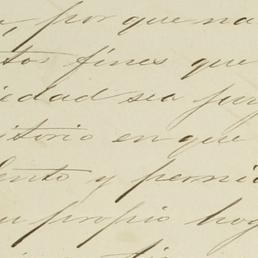 , por que na
tos fines que
iedad sea juz
itorio en que
lento y pernic
u propio hog